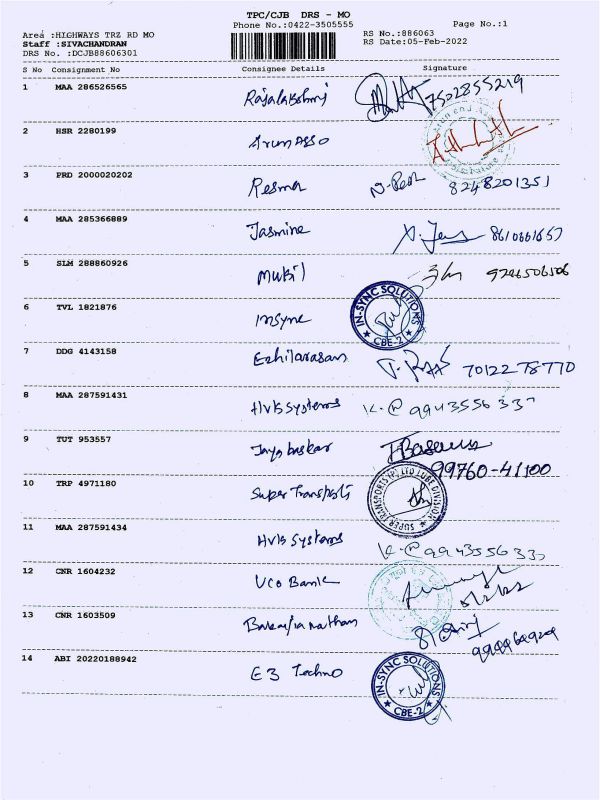 TPC/CJB DRS - MO
Phone No.:0422-3505555
Page No.:1
Area :HIGHWAYS TRZ RD MO
Staff :SIVACHANDRAN
DRS No. :DCJB88606301
RS No.:886063
RS Date:05-Feb-2022
S No Consignment No Consignee Details Signature
1 MAA 286526565 Rajalakshmi 7502855219
2 HSR 2280199 Arun Asso
3 PRD 2000020202 Resma 8248201351
4 MAA 285366889 Jasmine 8610661657
5 SLM 288860926 Mukil
6 TVL 1821876 Insync IN-SYNC SOLUTIONS CBE-2
7 DDG 4143158 Ezhilarasan 70122 78770
8 MAA 287591431 Hvls systems K. 9943556337
9 TUT 953557 Jayabaskar 99760-41100
10 TRP 4971180 Super Transports SUPER TRANSPORTS (P) LTD LUBE DIVISION
11 MAA 287591434 Hvls systems K. 9943556337
12 CNR 1604232 UCO Bank
13 CNR 1603509
14 ABI 20220188942 E3 Techno IN-SYNC SOLUTIONS CBE-2